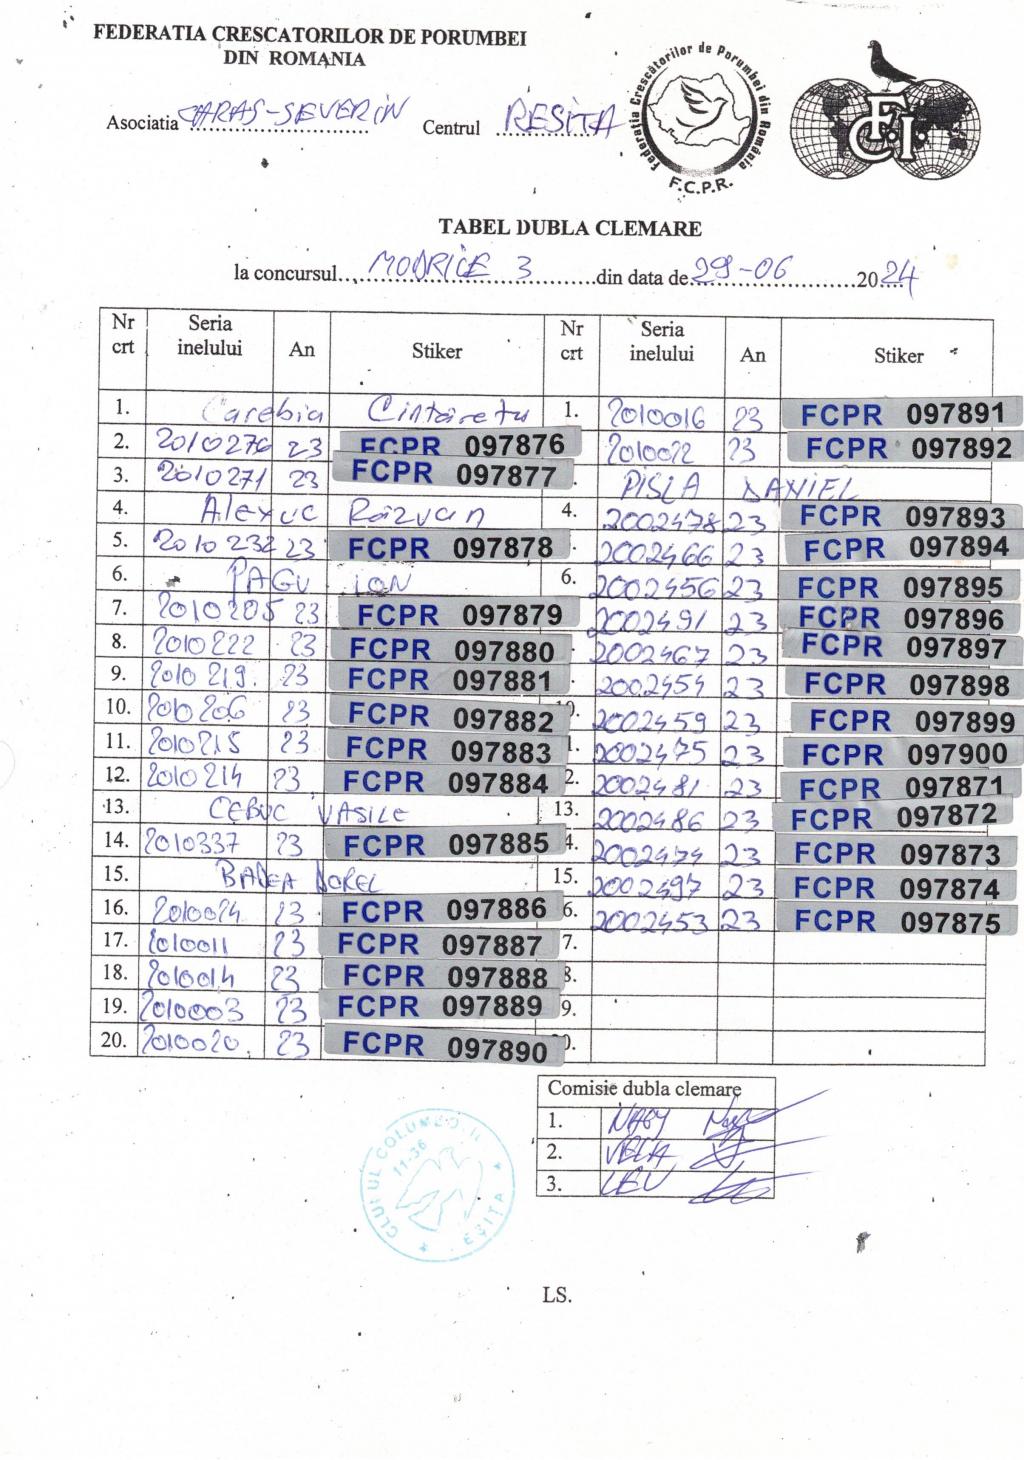 FEDERATIA CRESCATORILOR DE PORUMBEI
DIN ROMANIA
Asociatia CARAS-SEVERIN Centrul RESITA
Federatia Crescătorilor de Porumbei din România
F.C.P.R.
F.C.I.
TABEL DUBLA CLEMARE
la concursul MODRICE 3 din data de 29-06 2024
Nr crt Seria inelului An Stiker Nr crt Seria inelului An Stiker
1. Carebia Cintoiretu 1. 2010016 23 FCPR 097891
2. 2010276 23 FCPR 097876 2010022 23 FCPR 097892
3. 2010271 23 FCPR 097877 PISLA DANIEL
4. Alexuc Răzvan 4. 2002478 23 FCPR 097893
5. 2010232 23 FCPR 097878 2002466 23 FCPR 097894
6. PAGU ION 6. 2002456 23 FCPR 097895
7. 2010205 23 FCPR 097879 2002491 23 FCPR 097896
8. 2010222 23 FCPR 097880 2002467 23 FCPR 097897
9. 2010219. 23 FCPR 097881 2002454 23 FCPR 097898
10. 2010206 23 FCPR 097882 10. 2002459 23 FCPR 097899
11. 2010215 23 FCPR 097883 1. 2002475 23 FCPR 097900
12. 2010214 23 FCPR 097884 2. 2002481 23 FCPR 097871
13. CEBUC VASILE 13. 2002486 23 FCPR 097872
14. 2010337 23 FCPR 097885 4. 2002474 23 FCPR 097873
15. BADEA DOREL 15. 2002497 23 FCPR 097874
16. 2010024 23 FCPR 097886 6. 2002453 23 FCPR 097875
17. 2010011 23 FCPR 097887 7.
18. 2010014 23 FCPR 097888 8.
19. 2010003 23 FCPR 097889 9.
20. 2010020. 23 FCPR 097890 0.
Comisie dubla clemare
1. NAGY
2. VELA
3. LEU
CLUBUL COLUMBOFIL
11-36
LS.